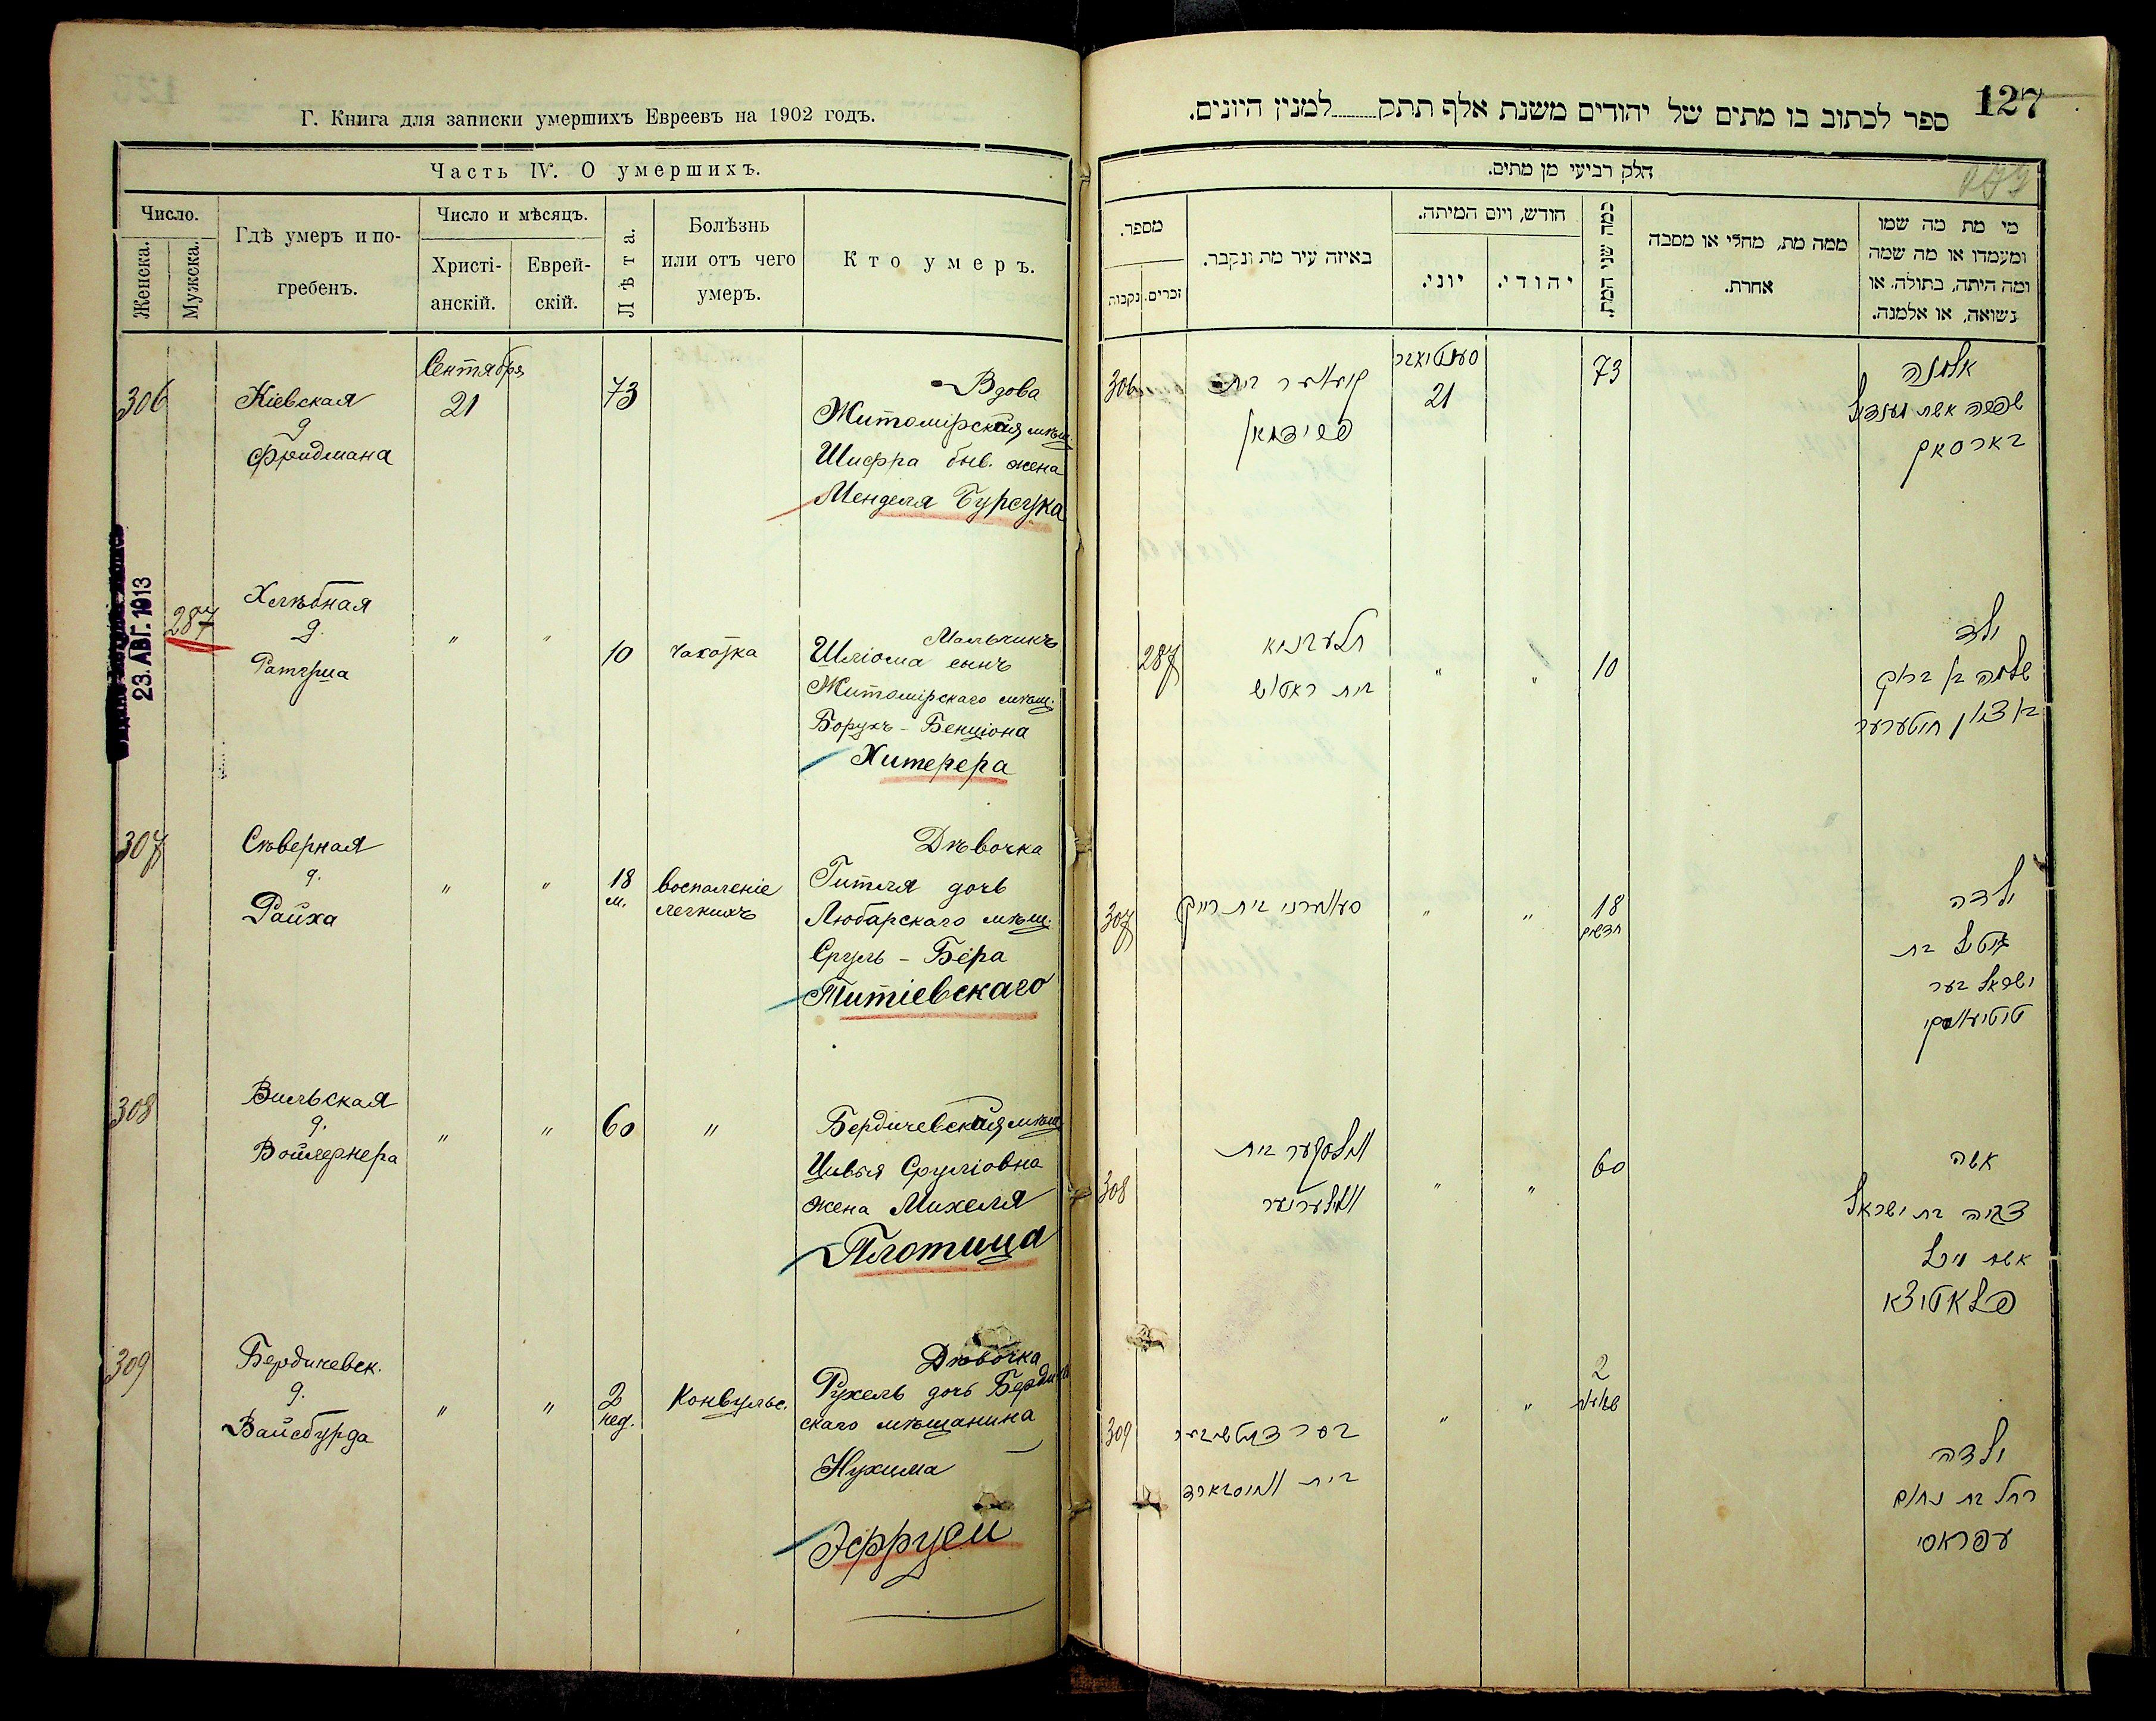 Г. Книга для записки умершихъ Евреевъ на 1902 годъ.
Часть IV. О умершихъ.
Число.
Женска.
Мужска.
Гдѣ умеръ и по-
гребенъ.
Число и мѣсяцъ.
Христі-
анскій.
Еврей-
скій.
Лѣта.
Болѣзнь
или отъ чего
умеръ.
Кто умеръ.
306
Кіевская
д
Фридмана
Сентября
21
73
Вдова
Житомірская мѣщ.
Шифра быв. жена
Менделя Бурсука
23. АВГ. 1913
287
Хлѣбная
д.
Ратуша
"
"
10
чахотка
Мальчикъ
Шліома сынъ
Житомірскаго мѣщ.
Борухъ - Бенціона
Хитерера
307
Сѣверная
д.
Райха
"
"
18
м.
воспаленіе
легкихъ
Дѣвочка
Гитля дочь
Любарскаго мѣщ.
Сруль - Бера
Титіевскаго
308
Вильская
д.
Войлернера
"
"
60
"
Бердичевская мѣщ.
Цивья Сруліовна
жена Михеля
Плотица
309
Бердичевск.
д.
Вайсбурда
"
"
2
нед.
Конвульс.
Дѣвочка
Рухель дочь Бердиче
скаго мѣщанина
Нухима
Эфруси
127
ספר לכתוב בו מתים של יהודים משנת אלף תתק......למנין היונים.
חלק רביעי מן מתים.
מספר.
נקבות
זכרים.
באיזה עיר מת ונקבר.
חודש, ויום המיתה.
יוני.
יהודי.
כמה שני המת.
ממה מת, מחלי או מסבה
אחרת.
מי מת מה שמו
ומעמדו או מה שמה
ומה היתה, בתולה, או
נשואה, או אלמנה.
306
בית
פרידמאן
21
73
אלמנה
שפרה אשת מענדיל
בארסאק
287
"
"
10
ילד
שלמה בן ברוך
בן ציון חיטערער
307
בית רייך
"
"
18
חדשים
ילדה
גיטל בת
ישראל בער
טיטיעווסקי
308
בית
"
"
60
אשה
צביה בת ישראל
אשת מיכל
פלאטיצא
309
בית
"
"
2
שבועות
ילדה
רחל בת נחום
עפראסי